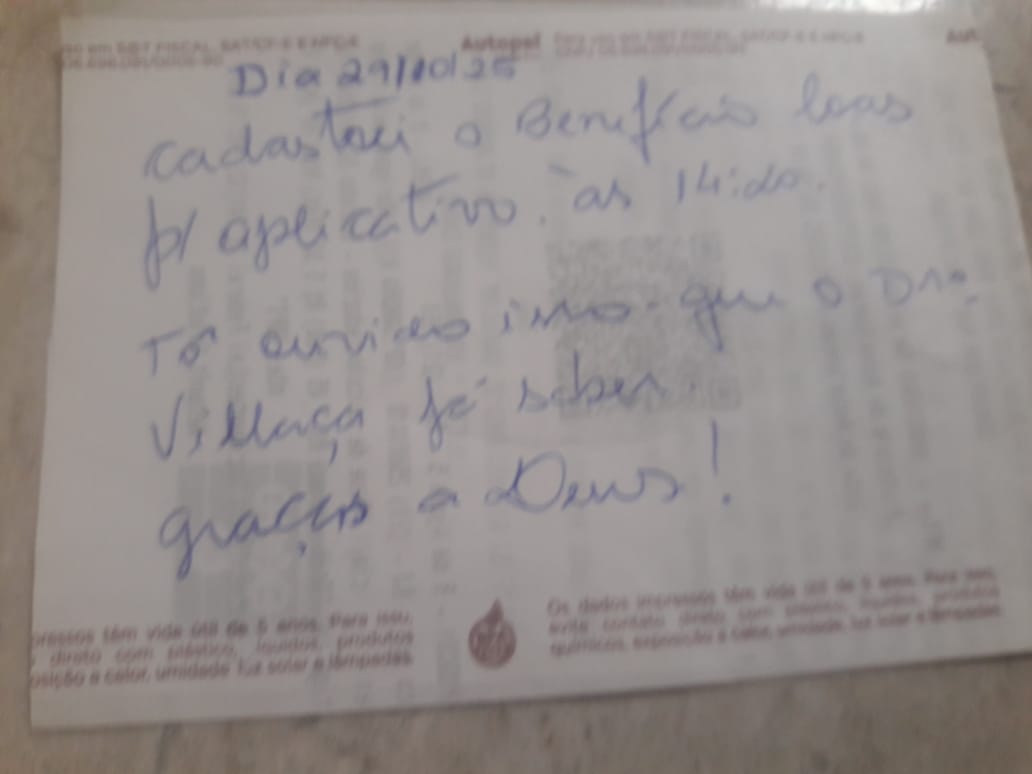 Autopel
Dia 29/10/25
cadastrei o Benefício loas
p/ aplicativo. às 14:
Tô ouvido isso que o Dro.
Villaça já saber.
graças a Deus!
pressos têm vida útil de 5 anos. Para isso,
direto com plástico, líquidos, produtos
osição a calor, umidade luz solar e lâmpadas
Os dados impressos têm vida útil de 5 anos. Para isso,
evite contato direto com plástico, líquidos, produtos
químicos, exposição a calor, umidade, luz solar e lâmpadas